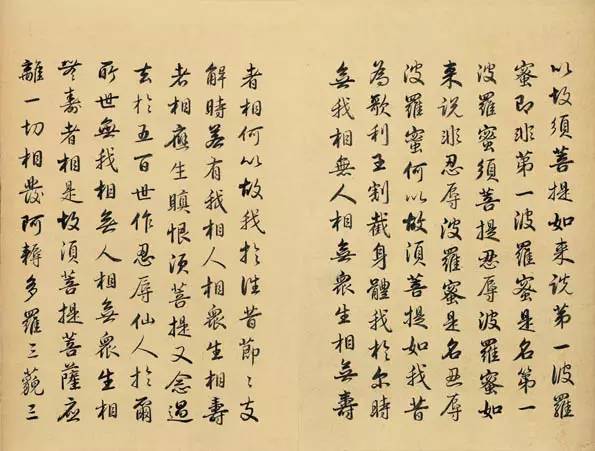 以故須菩提如来说第一波羅
蜜即非第一波羅蜜是名第一
波羅蜜須菩提忍辱波羅蜜如
来说非忍辱波羅蜜是名忍辱
波羅蜜何以故須菩提如我昔
為歌利王割截身體我於尔時
無我相無人相無衆生相無壽
者相何以故我於往昔節〻支
解時若有我相人相衆生相壽
者相應生瞋恨須菩提又念過
去於五百世作忍辱仙人於爾
所世無我相無人相無衆生相
無壽者相是故須菩提菩薩應
離一切相發阿耨多羅三藐三